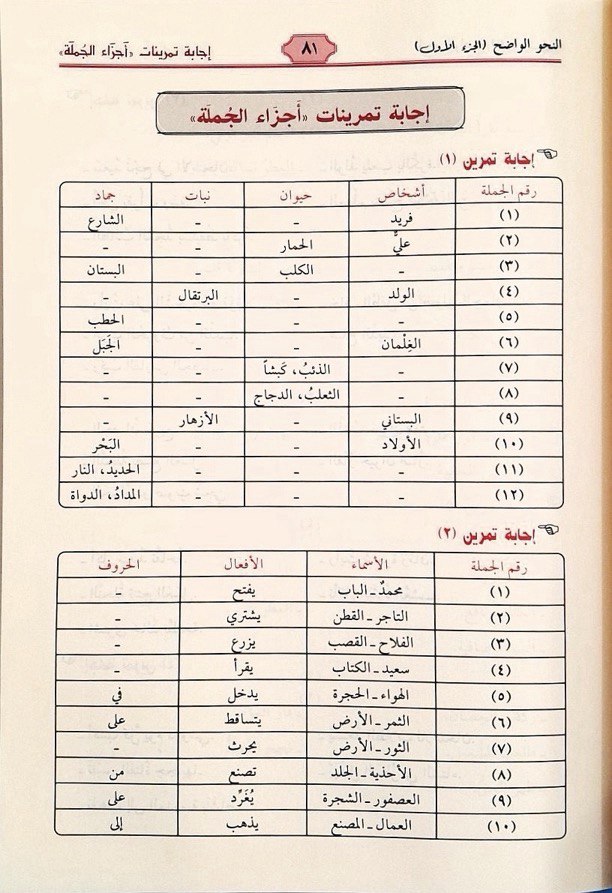 النحو الواضح (الجزء الأول) ٨١ إجابة تمرينات «أجزاء الجُملَة»
إجابة تمرينات «أَجزَاء الجُملَة»
إجابة تمرين (١)
رقم الجملة أشخاص حيوان نبات جماد
(١) فريد - - الشارع
(٢) عليٌّ الحمار - -
(٣) - الكلب - البستان
(٤) الولد - البرتقال -
(٥) - - - الحطب
(٦) الغِلْمان - - الجَبَل
(٧) - الذئبُ، كَبشاً - -
(٨) - الثعلبُ، الدجاج - -
(٩) البستاني - الأزهار -
(١٠) الأولاد - - البَحْر
(١١) - - - الحديدُ، النار
(١٢) - - - المدادُ، الدواة
إجابة تمرين (٢)
رقم الجملة الأسماء الأفعال الحروف
(١) محمدٌ - الباب يفتح -
(٢) التاجر - القطن يشتري -
(٣) الفلاح - القصب يزرع -
(٤) سعيد - الكتاب يقرأ -
(٥) الهواء - الحجرة يدخل في
(٦) الثمر - الأرض يتساقط على
(٧) الثور - الأرض يحرث -
(٨) الأحذية - الجلد تصنع من
(٩) العصفور - الشجرة يُغَرِّد على
(١٠) العمال - المصنع يذهب إلى